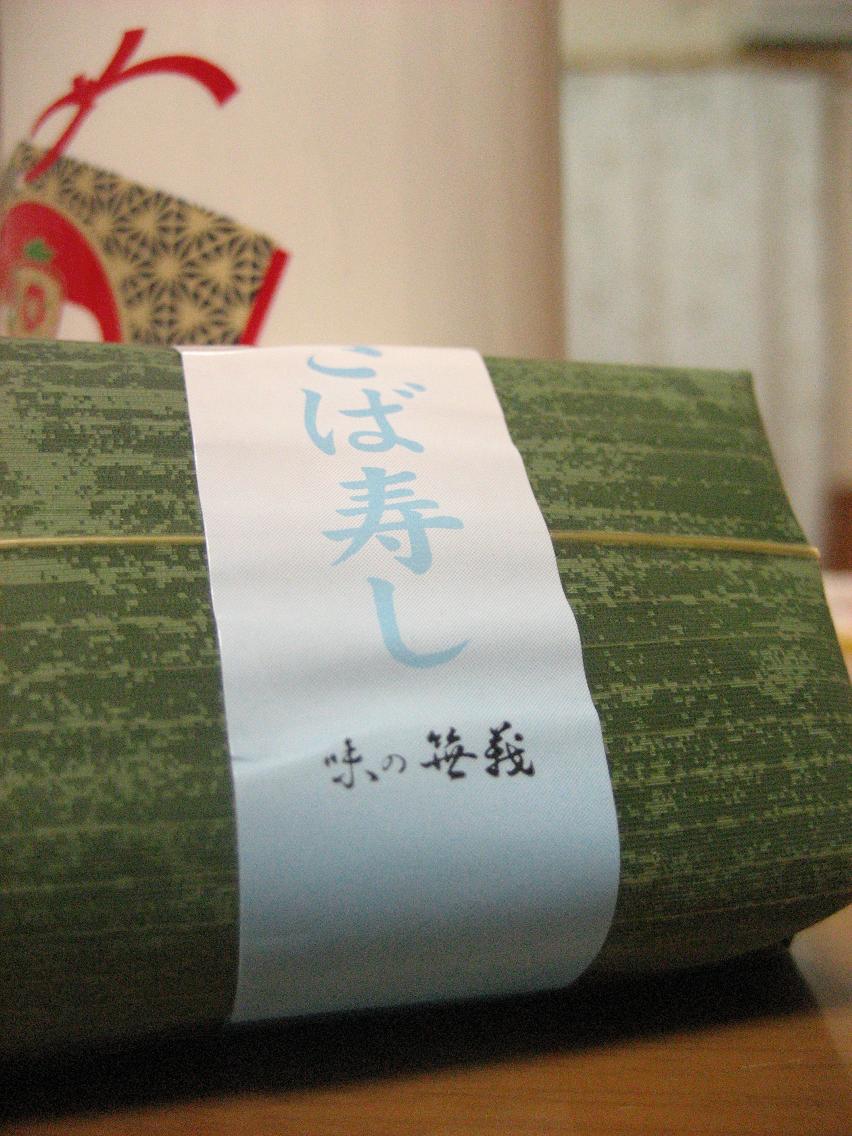 こば寿し
味の笹義